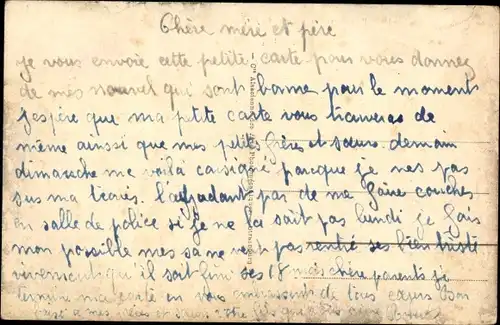 Chère mère et père
je vous envoie cette petite carte pour vous donner
de mes nouvel qui sont bonne pour le moments
jespère que ma petite carte vous trouveras de
même ainsi que mes petits frères et sœurs demain
dimanche me voilà consigné parcque je mes pas
sus ma l'adjudant pas de me faire coucher
en salle de police si je ne la sait pas lundi je fais
mon possible mes sa ne veut pas rentré ses bien triste
vivement qu'il soit fini ses 18 mois chère parents je
termine ma carte en vous embrassent de tous cœurs Bon
a mes frères et sœurs votre fils que